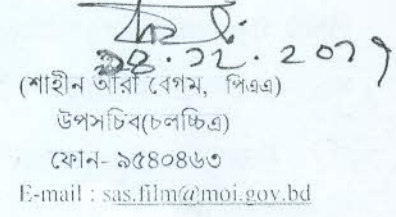 (শাহীন আরা বেগম, পিএএ)
উপসচিব(চলচ্চিত্র)
ফোন- ৯৫৪০৪৬৩
E-mail : sas.film@moi.gov.bd